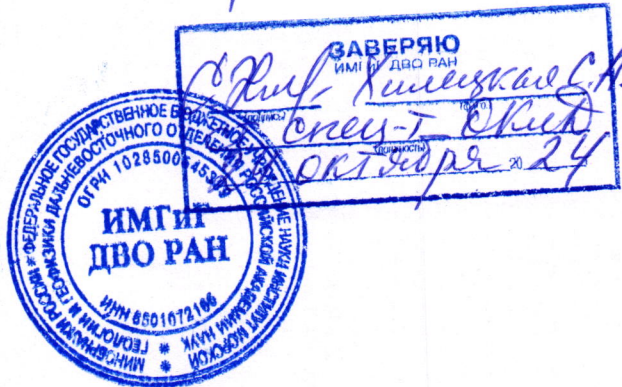 ЗАВЕРЯЮ
ИМГиГ ДВО РАН
Хилецкая С.Н.
(подпись)
спец-т ОКиД
(должность)
октября 20 24
МИНОБРНАУКИ РОССИИ * ФЕДЕРАЛЬНОЕ ГОСУДАРСТВЕННОЕ БЮДЖЕТНОЕ УЧРЕЖДЕНИЕ НАУКИ ИНСТИТУТ МОРСКОЙ
ГЕОЛОГИИ И ГЕОФИЗИКИ ДАЛЬНЕВОСТОЧНОГО ОТДЕЛЕНИЯ РОССИЙСКОЙ АКАДЕМИИ НАУК *
ОГРН
ИМГиГ
ДВО РАН
ИНН 6501072166